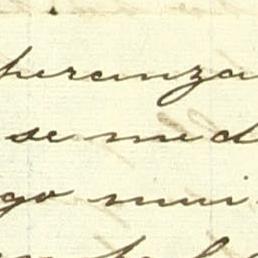 peranza
se med
go mui